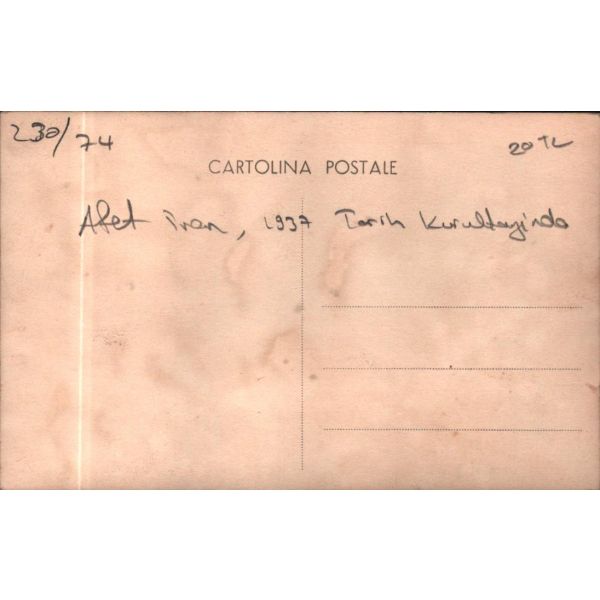 230/74
20 TL
CARTOLINA POSTALE
Afet İnan, 1937 Tarih Kurultayında